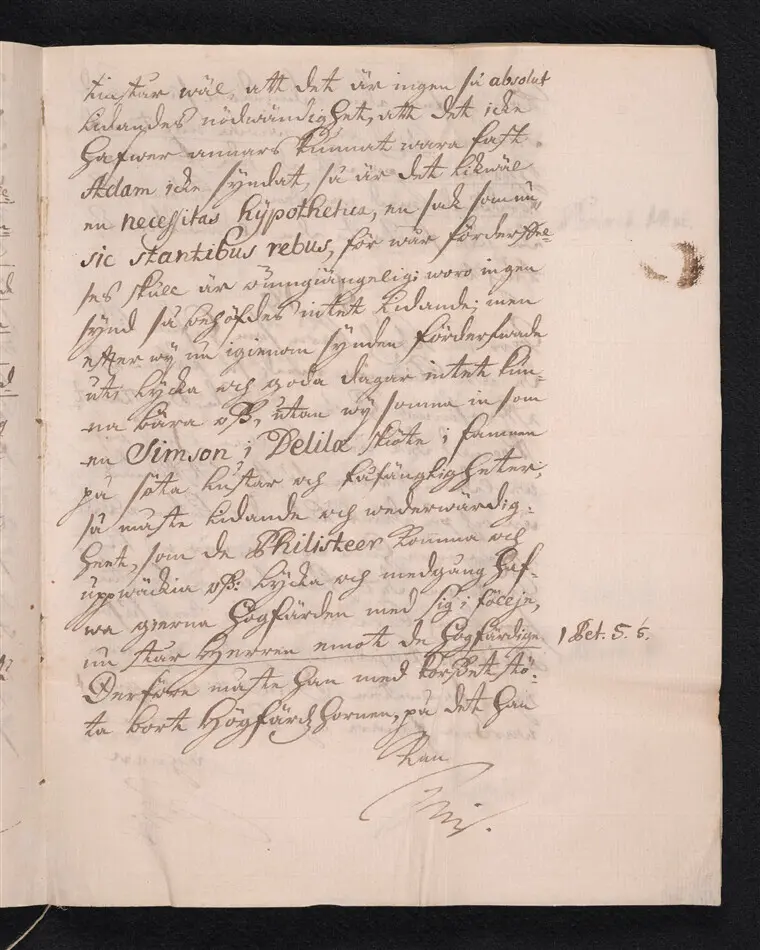 tinstar wäl, att det är ingen så absolut
Lidandes nödwändighet, att det icke
hafwer annars kunnat wara fast
Adam icke syndat, så är det likwäl
en necessitas hypothetica, en sak som nu,
sic stantibus rebus, för wår förderfwel-
ses skull är oumgiängelig; woro ingen
synd så behöfdes intet Lidande; men
efter wy nu igienom synden förderfwade
uti lycka och goda dagar intet kun-
na bära oss, utan wy somna in som
en Simson i Delilæ sköte i famnen
på söta lustar och fåfängligheter;
så måste Lidande och wederwärdig-
heet, som de Philisteer komma och
uppwäckia oss: Lycka och medgång haf-
wa gierna Högfärden med sig i föllje,
nu står Herren emot de Högfärdige, 1 Pet. 5. 6.
Derföre måste han med korsset stö-
ta bort Högfärds hornen, på det han
kan